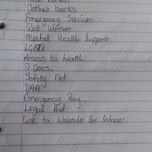 Clothes banks
Emergency Services
Well Woman
Mental Health Supports
LGBTI
Access to health
D. Docs.
Safety Net
Emergency Pay.
Legal Aid
Link to Website for